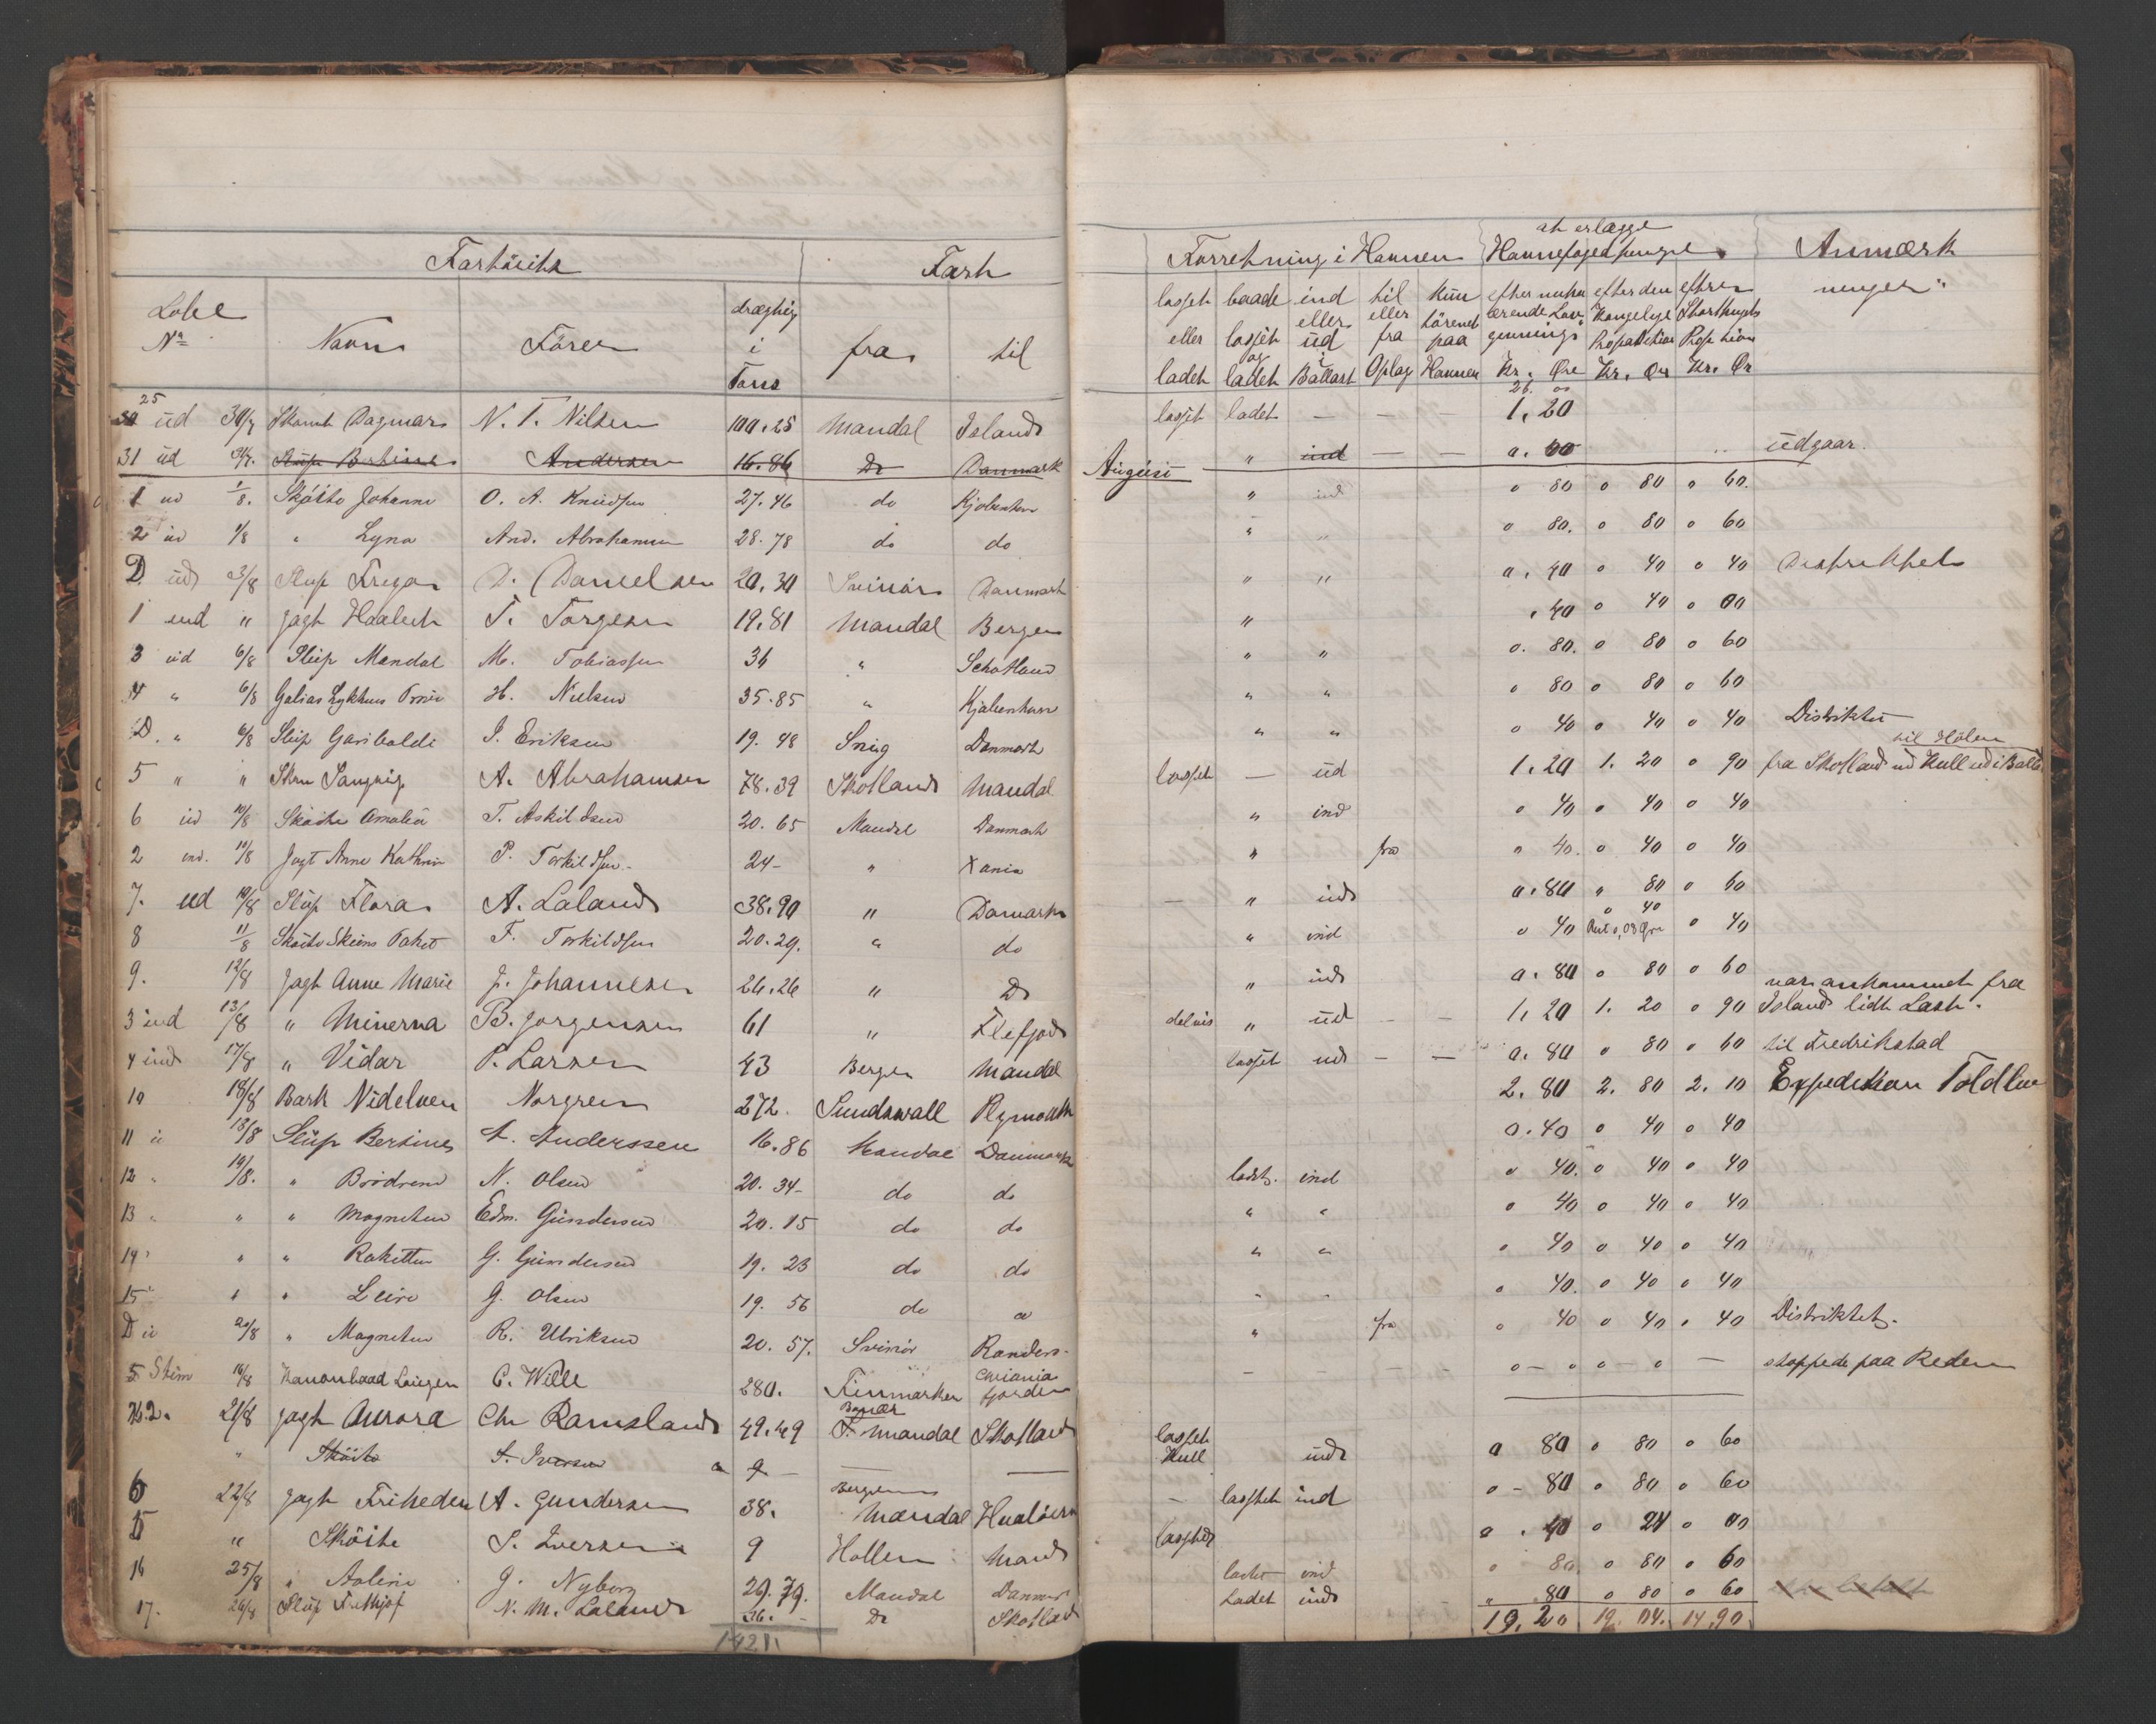 Fartöiets
Fart
Lobe
No
Navn
Förer
drægtig
i
Tons
fra
til
25
30 ud 30/7 Skonnt Dagmar N. T. Nilsen 100.25 Mandal Island
31 ud 31/7. Slup Bertine Andersen 16.86 Do Danmark
1 ud 1/8. Sköite Johanne O. A. Knudsen 27.46 do Kjobenhvn
2 ud 1/8 " Lyna And. Abrahamsen 28.78 do do
D ud 3/8 Slup Fregar D. Danielsen 20.30 Svinör Danmark
1 ind " Jagt Haabet T. Torgesen 19.81 Mandal Bergen
3 ud 6/8 Slup Mandal M. Tobiassen 31 " Schotland
4 " 6/8 Galias Lykkens H. Nielsen 35.85 " Kjøbenhavn
D. " 6/8 Slup Garibaldi J. Eriksen 19.48 Snig Danmark
5 " " Skon Sangvig A. Abrahamsen 78.39 Skotland Mandal
6 ud 10/8 Sköite Amalia T. Askildsen 20.65 Mandal Danmark
2 ind. 10/8 Jagt Anne Kathrin P. Torkildsen 24- " Xania
7. ud 10/8 Slup Flora A. Laland 38.90 " Danmark
8 11/8 Sköite Skiens Paket T. Torkildsen 20.29. " do
9. 12/8 Jagt Anne Marie J. Johannesen 26.26 " Do
3 ind 13/8 " Minerva B. Jorgensen 61 " Flefjord
4 ind 17/8 " Vidar P. Larsen 43 Bergen Mandal
10 18/8 Bark Nidelven Norgren 272. Sundswall Plymouth
11 u 18/8 Slup Bertines A. Anderssen 16.86 Mandal Danmark
12 " 19/8. " Brödrene N. Olsen 20.34- do do
13 " " " Magneten Edm. Gundersen 20.15 do do
14 " " " Raketten G. Gundersen 19.23 do do
15 " " " Leire G. Olsen 19.56 do do
D u 20/8 " Magneten R. Ulriksen 20.57. Svinör Randers
5 Stim 16/8 Kanonbaad Lougen C. Wille 280. Finmarken Chriania fjorden
2. 21/8 Jagt Aurora Chr Ramsland 49.49 Mandal Skotland
" Sköite S. Iversen 9
6 22/8 Jagt Friheden A. Gundersen 38. Bergen Mandal Hvalöern
5 " Sköite S. Iversen 9 Hollen Mand
16 25/8 " Aoline J. Nyborg 29.79. Mandal Danmar
17. 26/8 Slup Frithjof N. M. Laland 36. Do Skotland
1421.
Forretning i Havnen
at erlægge
Havnefogedpenge
Anmærk
ninger
losset eller ladet
baade losset og ladet
ind eller ud i Ballast
til eller fra Oplag
kun törenet paa Havnen
Kr. Øre
efter den Kongelige
Kr. Ør
efter Storthings
Kr. Ør
26.
losset ladet — — — 1.20
August " ind — — 0.60 udgaar.
" ind 0 80 0 80 0 60.
" " 0 80. 0 80 0 60
" " 0.40 0 40 0 40 Distriktet
" .40 0 40 0 00
" " 0.80. 0 80 0 60
" " 0 80 0 80 0 60
" " 0 40 0 40 0 40 Distriktet
til Hölen
losset — ud 1.20 1.20 0 90 fra Skotland m Kull ud i Ballst
" ind 0 40 0 40 0 40
" fra 0 40. 0 40 0 40
— " ind 0.80 " 80 0 60
0 40
" ind 0 40 0 40
" ind 0.80 0 80 0 60
var ankommet fra
delvis " ud — — 1.20 1.20 0 90 Island lidt Last.
losset ud — — 0.80 0 80 0 60 til Fredrikstad
2.80 2.80 2.10 Expedition Toldbu
0.40 0 40 0 40
ladet. ind 0 40. 0 40 0 40
" " 0 40 0 40 0 40
" " 0 40 0 40 0 40
" " 0 40. 0 40 0 40
" fra 0 40 0 40 0 40 Distriktet.
— — — — — 0 — 0 0 — 0 — stoppede paa Reden
losset
Kull ind 0 80 0 80 0 60
— losset ind 0 - 80 0 80 0 60
losset 0.40 0 24 0 00
ladet ind 0 80. 0 80 0 60
Ladet ind " .80 0 80 0 60
19.20 19.04. 14.90